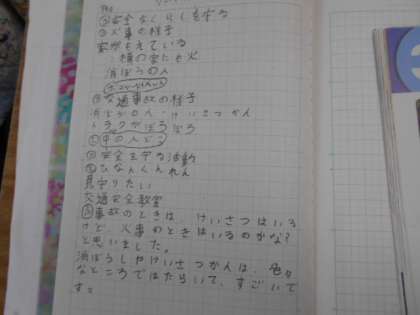 安全なくらしを守る
火事の様子
家がもえている
横の家にも火
消ぼうの人
交通事故の様子
消ぼうの人・けいさつかん
トラックがぼろぼろ
中の人は
安全を守る活動
ひなんくんれん
見守りたい
交通安全教室
事故のときは けいさつはいる
けど、火事のときはいるのかな?
と思いました。
消ぼうしやけいさつかんは、色々
なところではたらいて、すごいで
す。